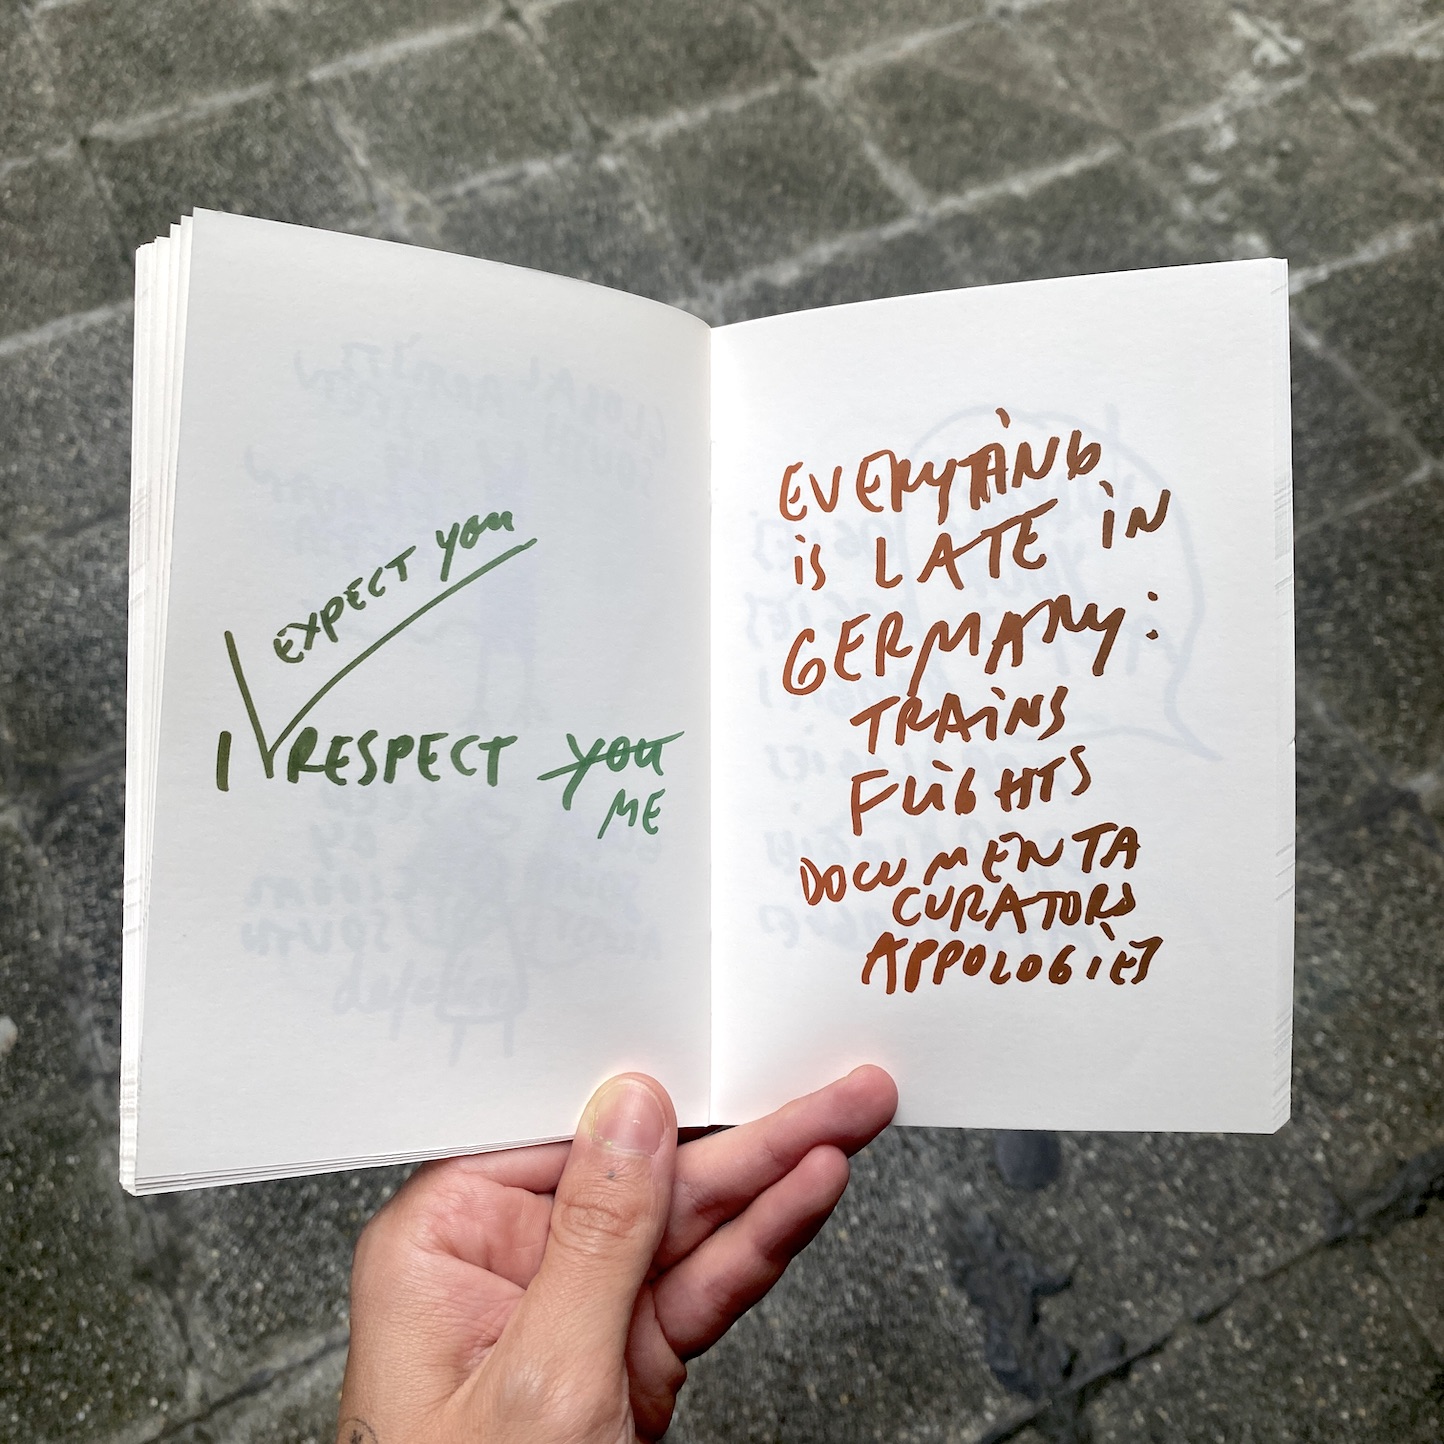 EXPECT YOU
I RESPECT YOU
ME
EVERYTHING
is LATE iN
GERMANY:
TRAiNS
FLiGHTS
DOCUMENTA
CURATORS
APPOLOGiES